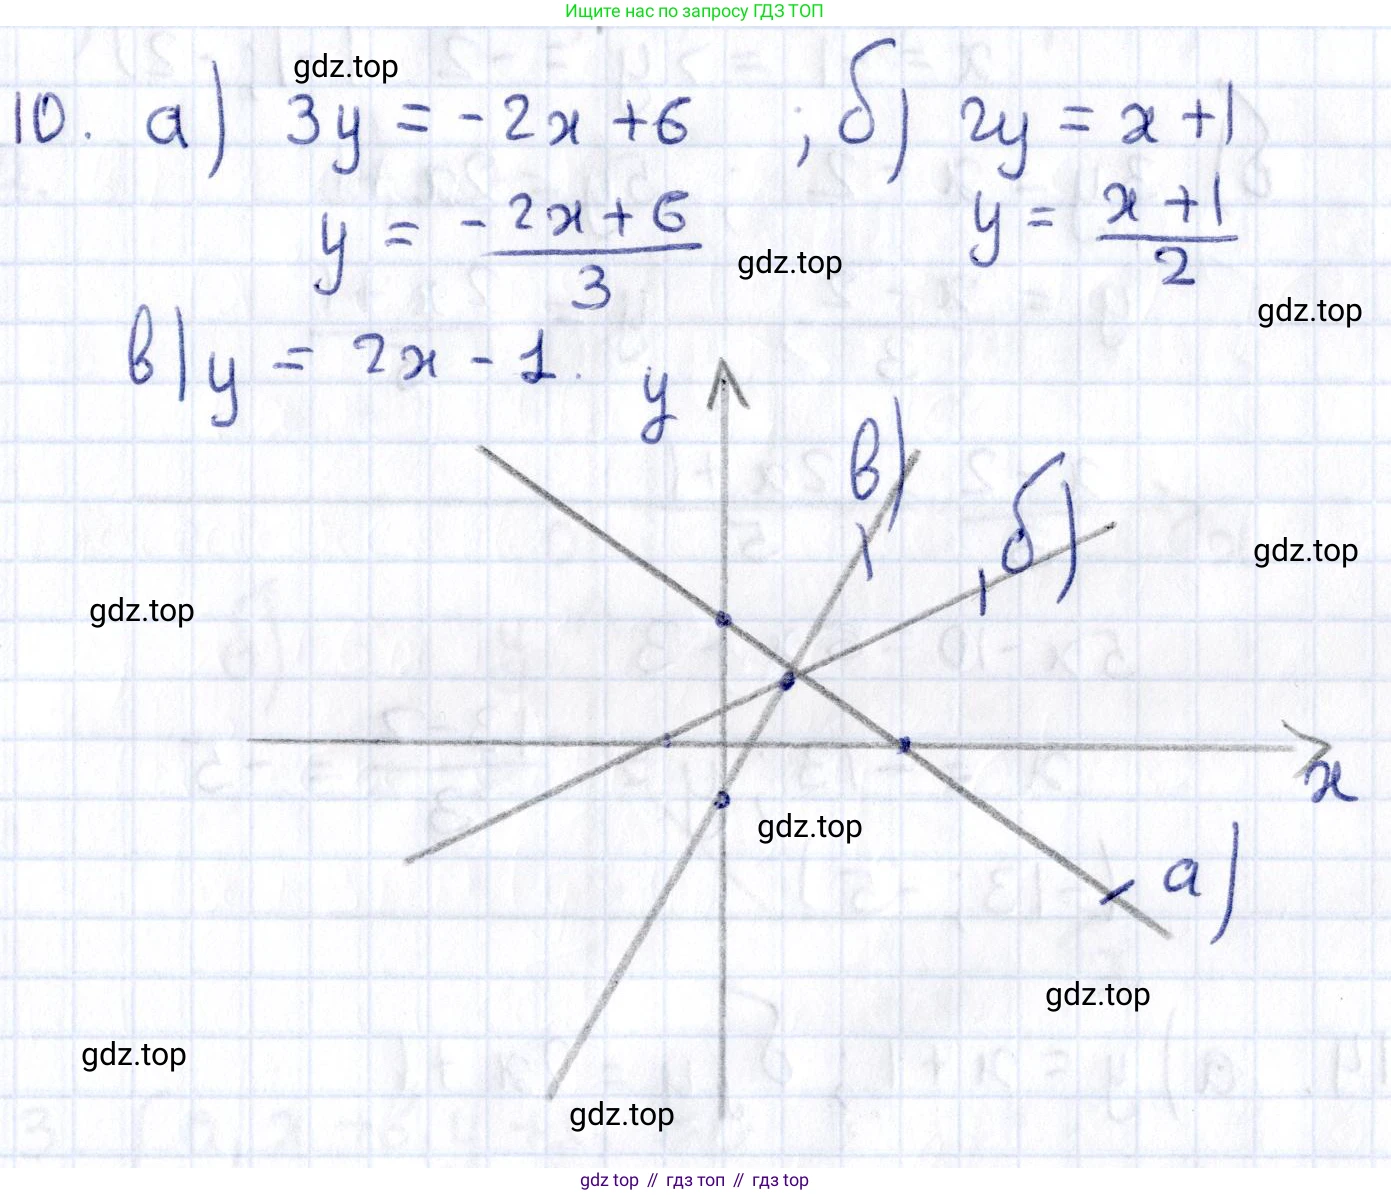 Ищите нас по запросу ГДЗ ТОП
gdz.top
10. а) 3y = -2x + 6 ; б) 2y = x + 1
y = -2x + 6 / 3 y = x + 1 / 2
gdz.top
gdz.top
в) y = 2x - 1.
y
в)
б)
gdz.top
gdz.top
x
gdz.top
а)
gdz.top
gdz.top
gdz.top
gdz top // гдз топ // гдз top